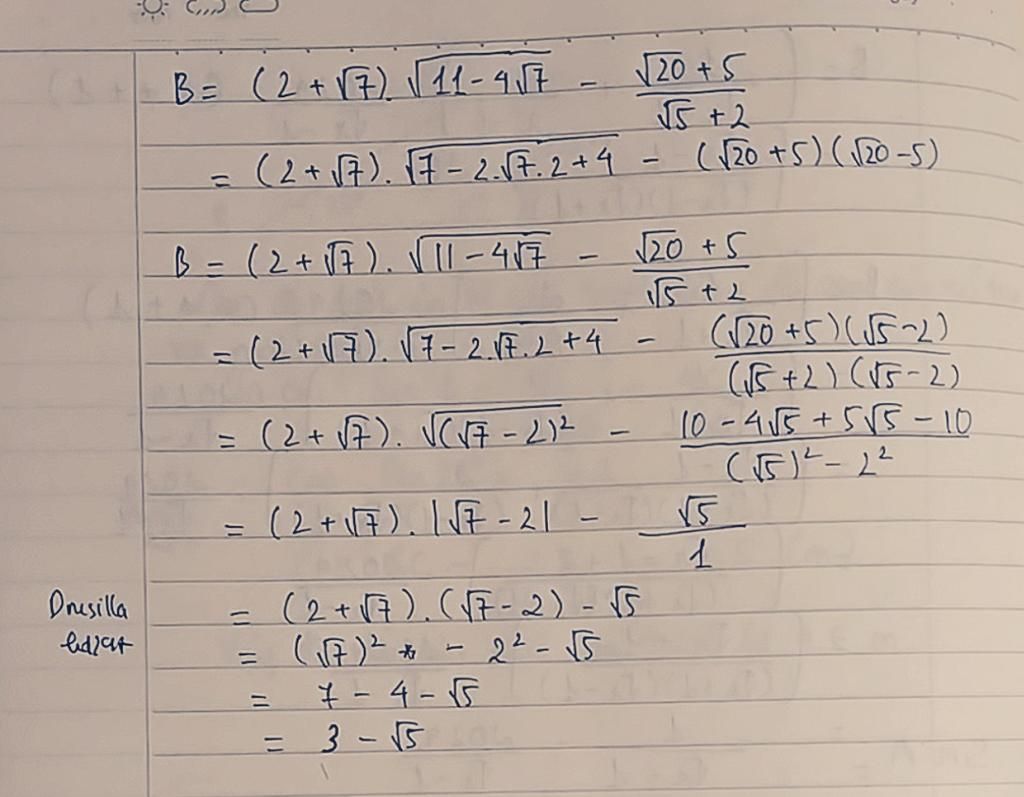 B = (2 + √7). √(11 - 4√7) - (√20 + 5)/(√5 + 2)
= (2 + √7). √(7 - 2.√7.2 + 4) - (√20 + 5)(√20 - 5)
B = (2 + √7). √(11 - 4√7) - (√20 + 5)/(√5 + 2)
= (2 + √7). √(7 - 2.√7.2 + 4) - ((√20 + 5)(√5 - 2))/((√5 + 2)(√5 - 2))
= (2 + √7). √((√7 - 2)²) - (10 - 4√5 + 5√5 - 10)/((√5)² - 2²)
= (2 + √7). |√7 - 2| - √5/1
Drusilla
= (2 + √7). (√7 - 2) - √5
= (√7)² - 2² - √5
= 7 - 4 - √5
= 3 - √5